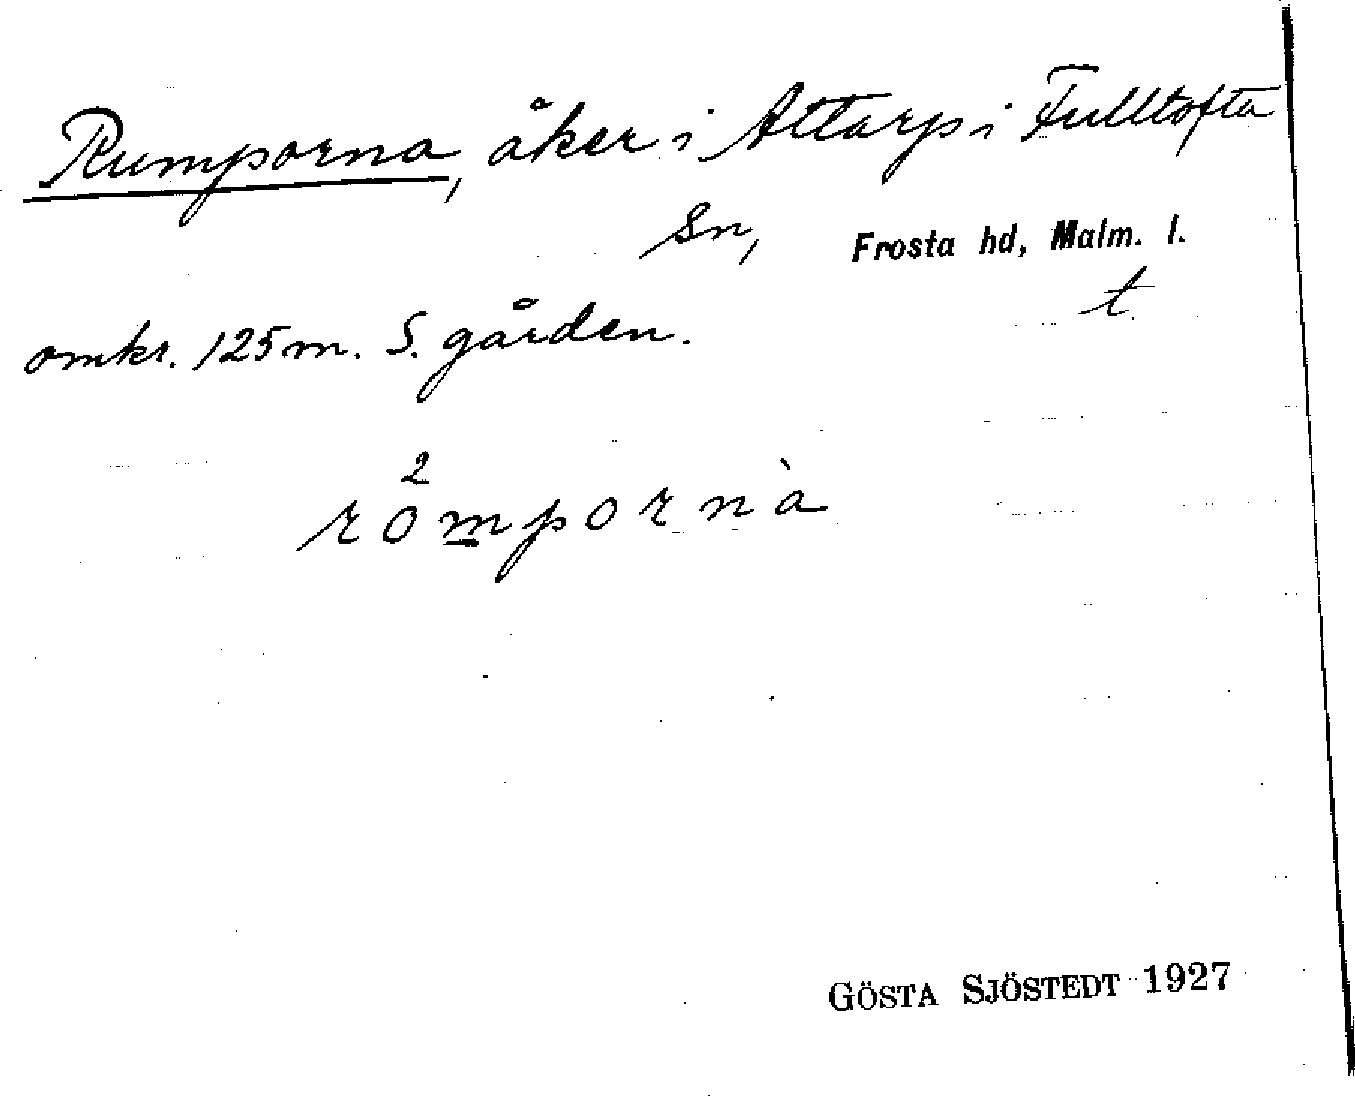 Rumporna, åker i Attarp i Fulltofta
Sn, Frosta hd, Malm. l.
t
omkr. 125 m. S. gården.
2
rompornà
GÖSTA SJÖSTEDT 1927